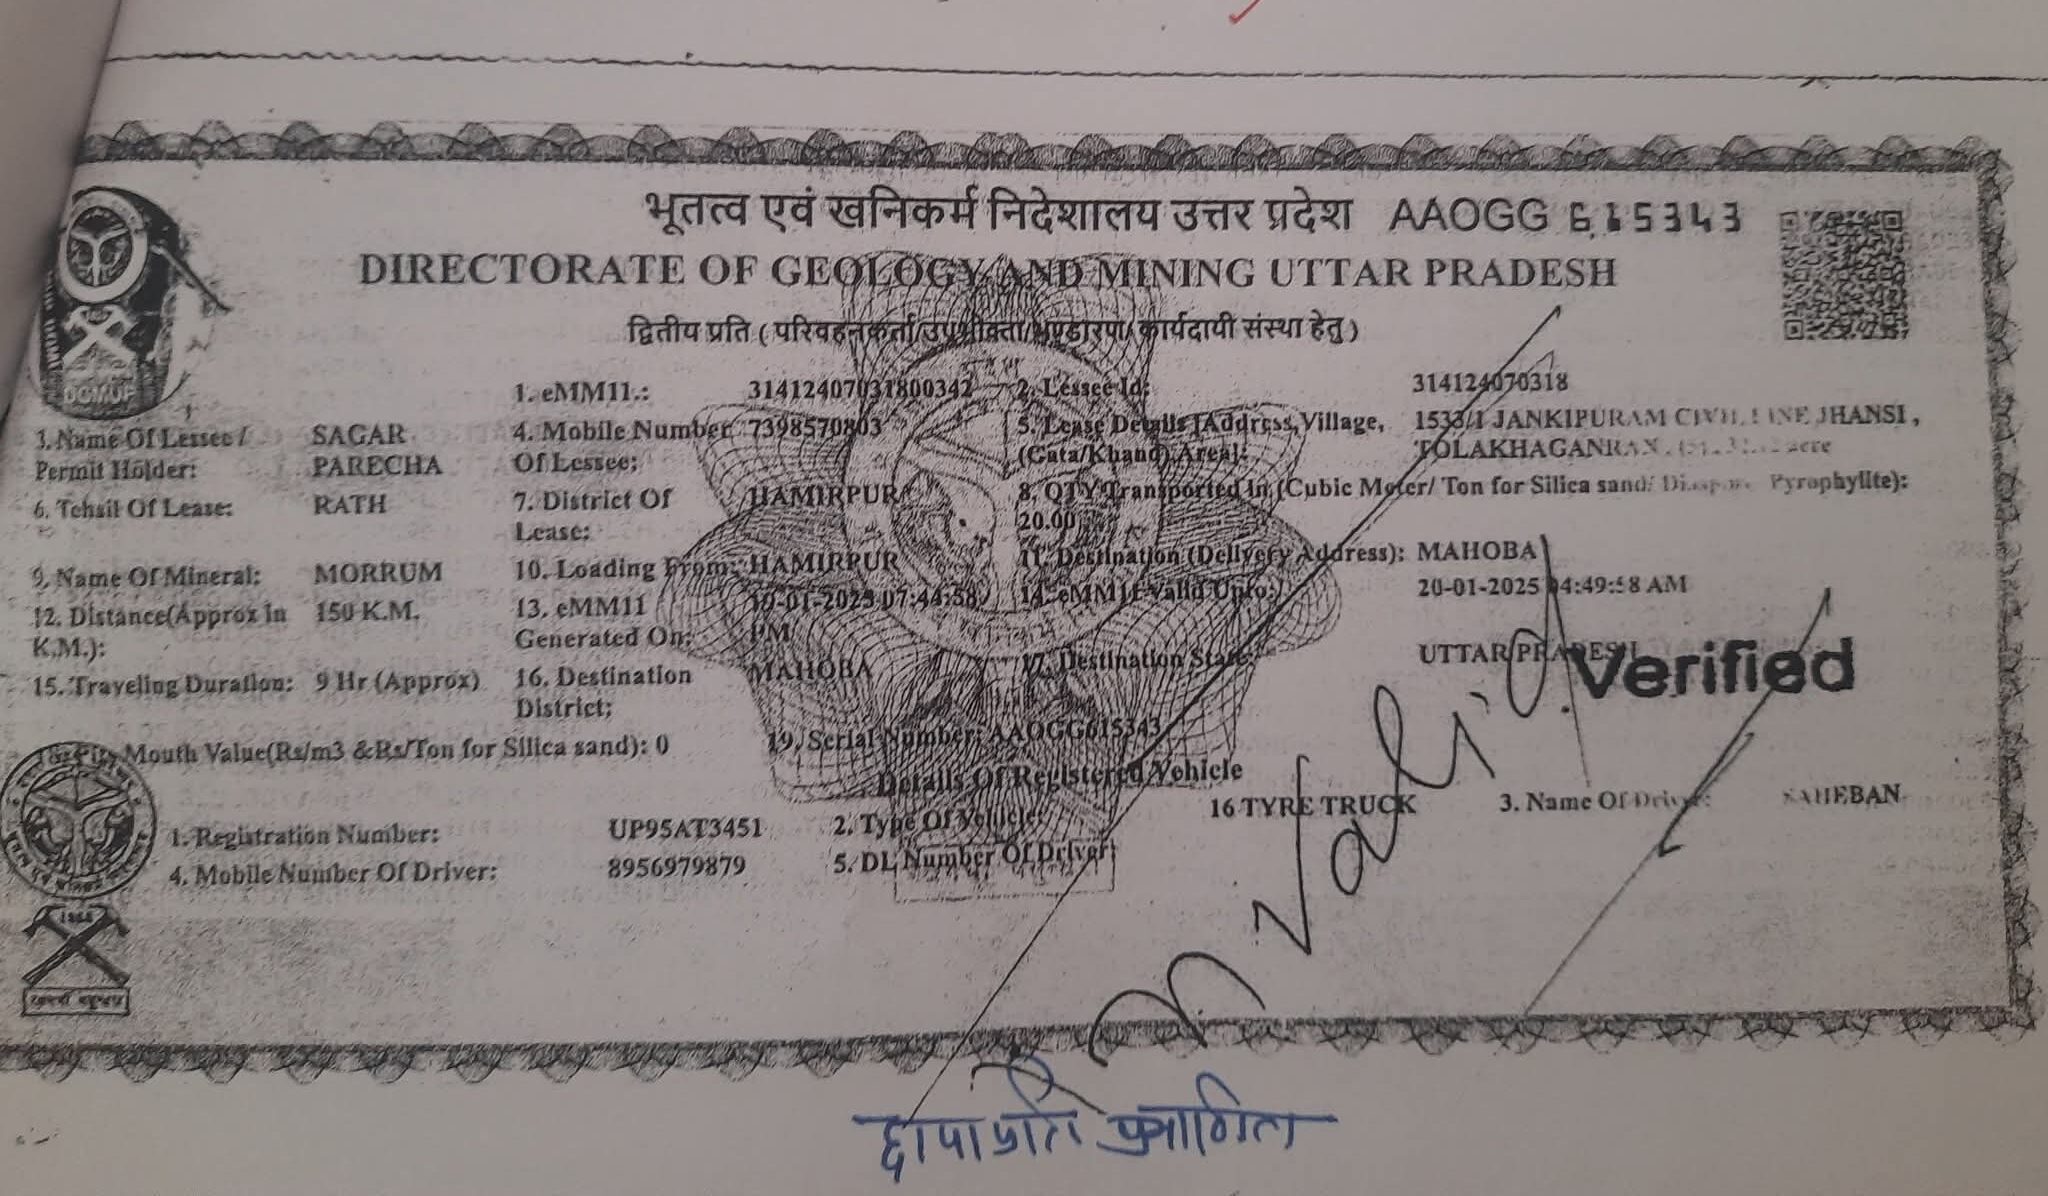 भूतत्व एवं खनिकर्म निदेशालय उत्तर प्रदेश AAOGG 615343
DIRECTORATE OF GEOLOGY AND MINING UTTAR PRADESH
द्वितीय प्रति ( परिवहनकर्ता/उपभोक्ता/भण्डारण/ कार्यदायी संस्था हेतु )
DGMUP
1. eMM11.: 31412407031800342 2. Lessee Id: 314124070318
3. Name Of Lessee / Permit Holder: SAGAR PARECHA 4. Mobile Number Of Lessee: 7398570803 5. Lease Details [Address,Village, (Gata/Khand),Area]: 1533/1 JANKIPURAM CIVIL LINE JHANSI , acre
6. Tehsil Of Lease: RATH 7. District Of Lease: HAMIRPUR 8. QTY Transported in (Cubic Meter/ Ton for Silica sand/ Diaspore Pyrophylite): 20.00
9. Name Of Mineral: MORRUM 10. Loading From: HAMIRPUR 11. Destination (Delivery Address): MAHOBA
12. Distance(Approx in K.M.): 150 K.M. 13. eMM11 Generated On: 19-01-2025 07:44:58 PM 14. eMM11 Valid Upto: 20-01-2025 04:49:58 AM
15. Traveling Duration: 9 Hr (Approx) 16. Destination District: MAHOBA 17. Destination State: UTTAR PRADESH
Verified
18. Pit Mouth Value(Rs/m3 &Rs/Ton for Silica sand): 0 19. Serial Number: AAOGG615343
Details Of Registered Vehicle
1. Registration Number: UP95AT3451 2. Type Of Vehicle: 16 TYRE TRUCK 3. Name Of Driver: SAHEBAN
4. Mobile Number Of Driver: 8956979879 5. DL Number Of Driver:
Valid
छायाप्रति प्रमाणित